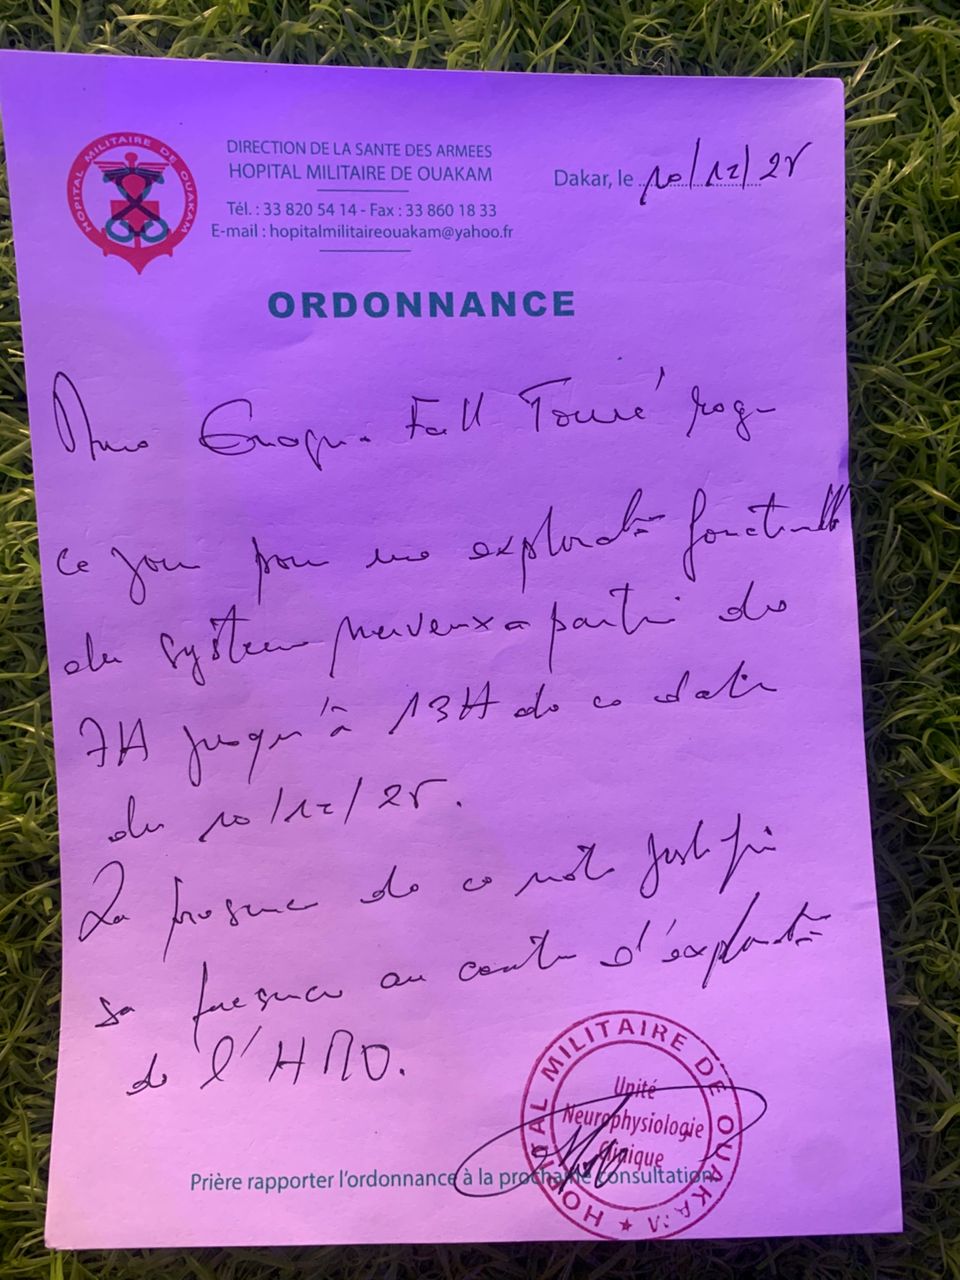 HOPITAL MILITAIRE DE OUAKAM
DIRECTION DE LA SANTE DES ARMEES
HOPITAL MILITAIRE DE OUAKAM
Tél. : 33 820 54 14 - Fax : 33 860 18 33
E-mail : hopitalmilitaireouakam@yahoo.fr
Dakar, le 10/12/25
ORDONNANCE
Mme Fall Touré
ce jour pour une exploration fonctionnelle
du système nerveux à partir de
7H jusqu'à 13H de ce date
du 10/12/25.
La présence de ce note justifie
sa présence au centre d'exploration
de l'HMO.
HOPITAL MILITAIRE DE OUAKAM
Unité
Neurophysiologie
Clinique
Prière rapporter l'ordonnance à la prochaine consultation